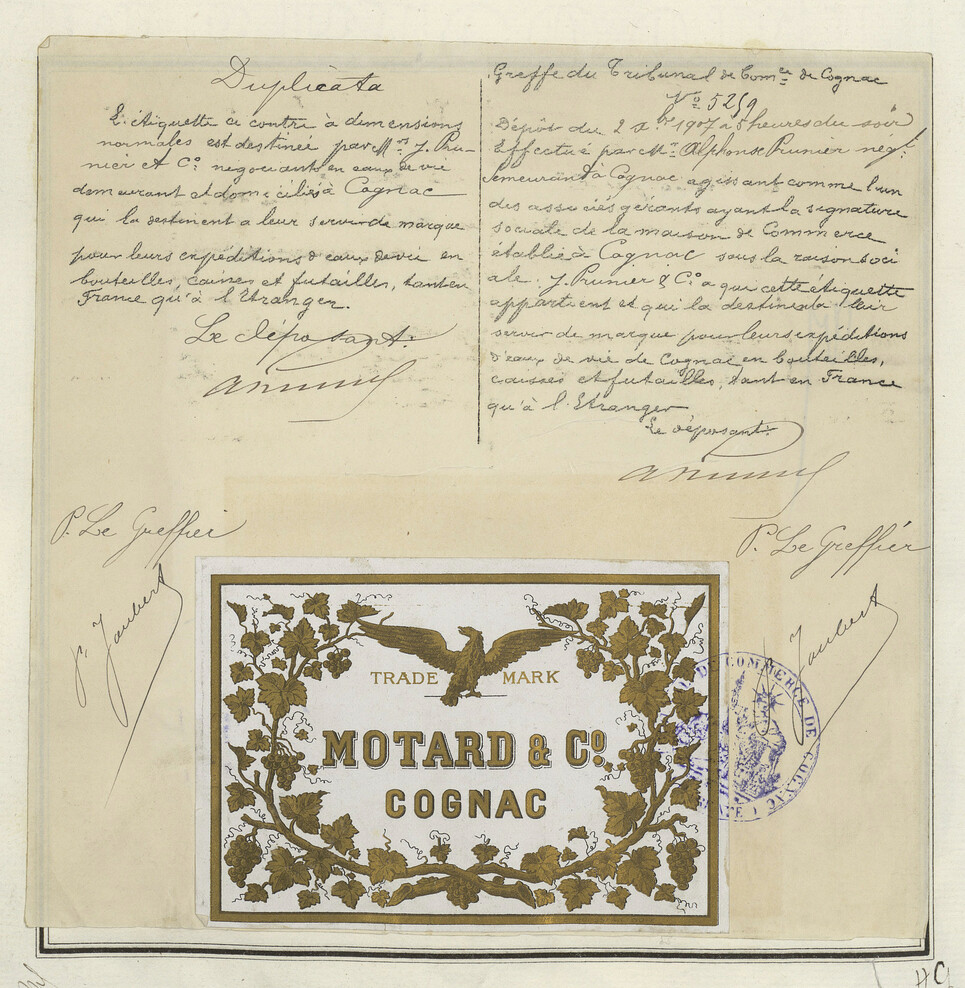 Duplicata
L'étiquette ci contre à dimensions
normales est destinée par Mrs J. Pru-
nier et Co negociants en eaux de vie
demeurant et domiciliés à Cognac
qui la destinent a leur servir de marque
pour leurs expéditions d'eaux de vie en
bouteilles, caisses et futailles, tant en
France qu'à l'Etranger.
Le déposant.
P. Le Greffier
Jaubert
Greffe du Tribunal de Comce de Cognac
No 5259
Dépôt du 2 1907 à 5 heures du soir
Effectué par Mr. Alphonse Prunier negt.
demeurant à Cognac agissant comme l'un
des associés gérants ayant la signature
sociale de la maison de Commerce
établie à Cognac sous la raison soci
ale. J. Prunier & Co a que cette etiquette
appartient et qui la destine à leur
servir de marque pour leurs expéditions
d'eaux de vie de Cognac en bouteilles,
caisses et futailles, tant en France
qu'à l'Etranger
Le déposant.
P. Le Greffier
Jaubert
TRADE MARK
MOTARD & Co.
COGNAC
DE COMMERCE DE COGNAC